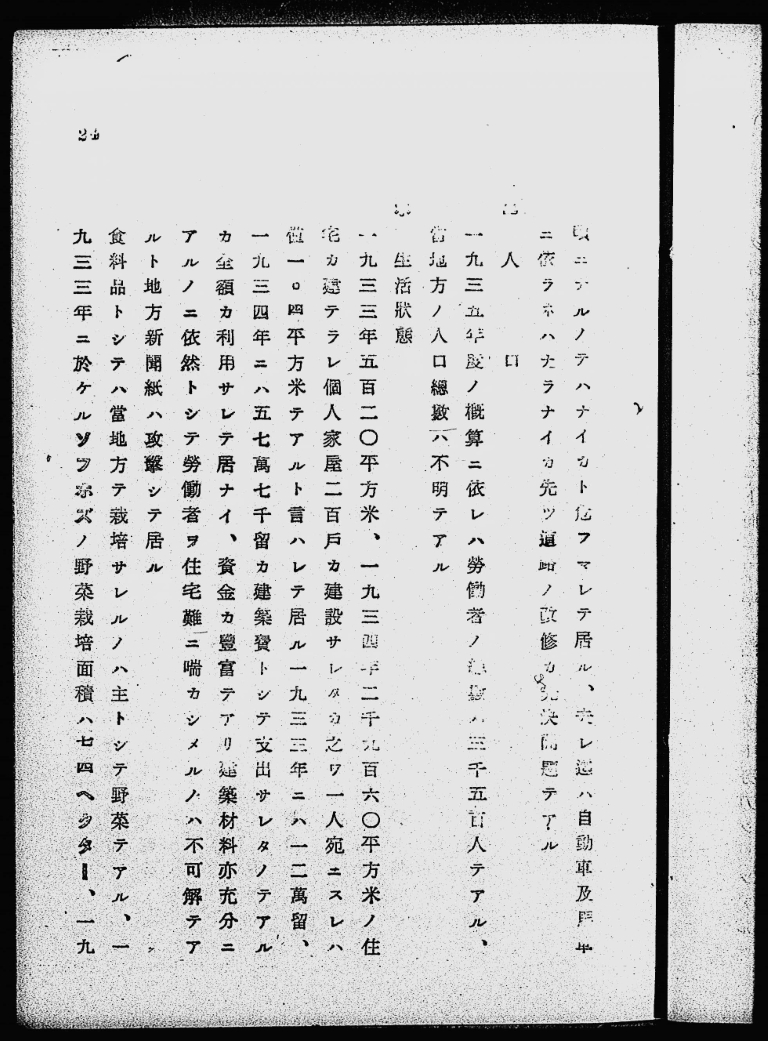 24
頃ニナルノテハナイカト危フマレテ居ル、夫レ迄ハ自動車及馬車
ニ依ラネハナラナイカ先ツ道路ノ改修カ先決問題テアル
人口
一九三五年度ノ概算ニ依レハ勞働者ノ總數ハ三千五百人テアル、
當地方ノ人口總數ハ不明テアル
生活狀態
一九三三年五百二〇平方米、一九三四年二千九百六〇平方米ノ住
宅カ建テラレ個人家屋二百戶カ建設サレタカ之ヲ一人宛ニスレハ
僅一〇四平方米テアルト言ハレテ居ル一九三三年ニハ一二萬留、
一九三四年ニハ五七萬七千留カ建築費トシテ支出サレタノテアル
カ全額カ利用サレテ居ナイ、資金カ豐富テアリ建築材料亦充分ニ
アルノニ依然トシテ勞働者ヲ住宅難ニ喘カシメルノハ不可解テア
ルト地方新聞紙ハ攻擊シテ居ル
食料品トシテハ當地方テ栽培サレルノハ主トシテ野菜テアル、一
九三三年ニ於ケルソフホズノ野菜栽培面積ハ七四ヘクター、一九